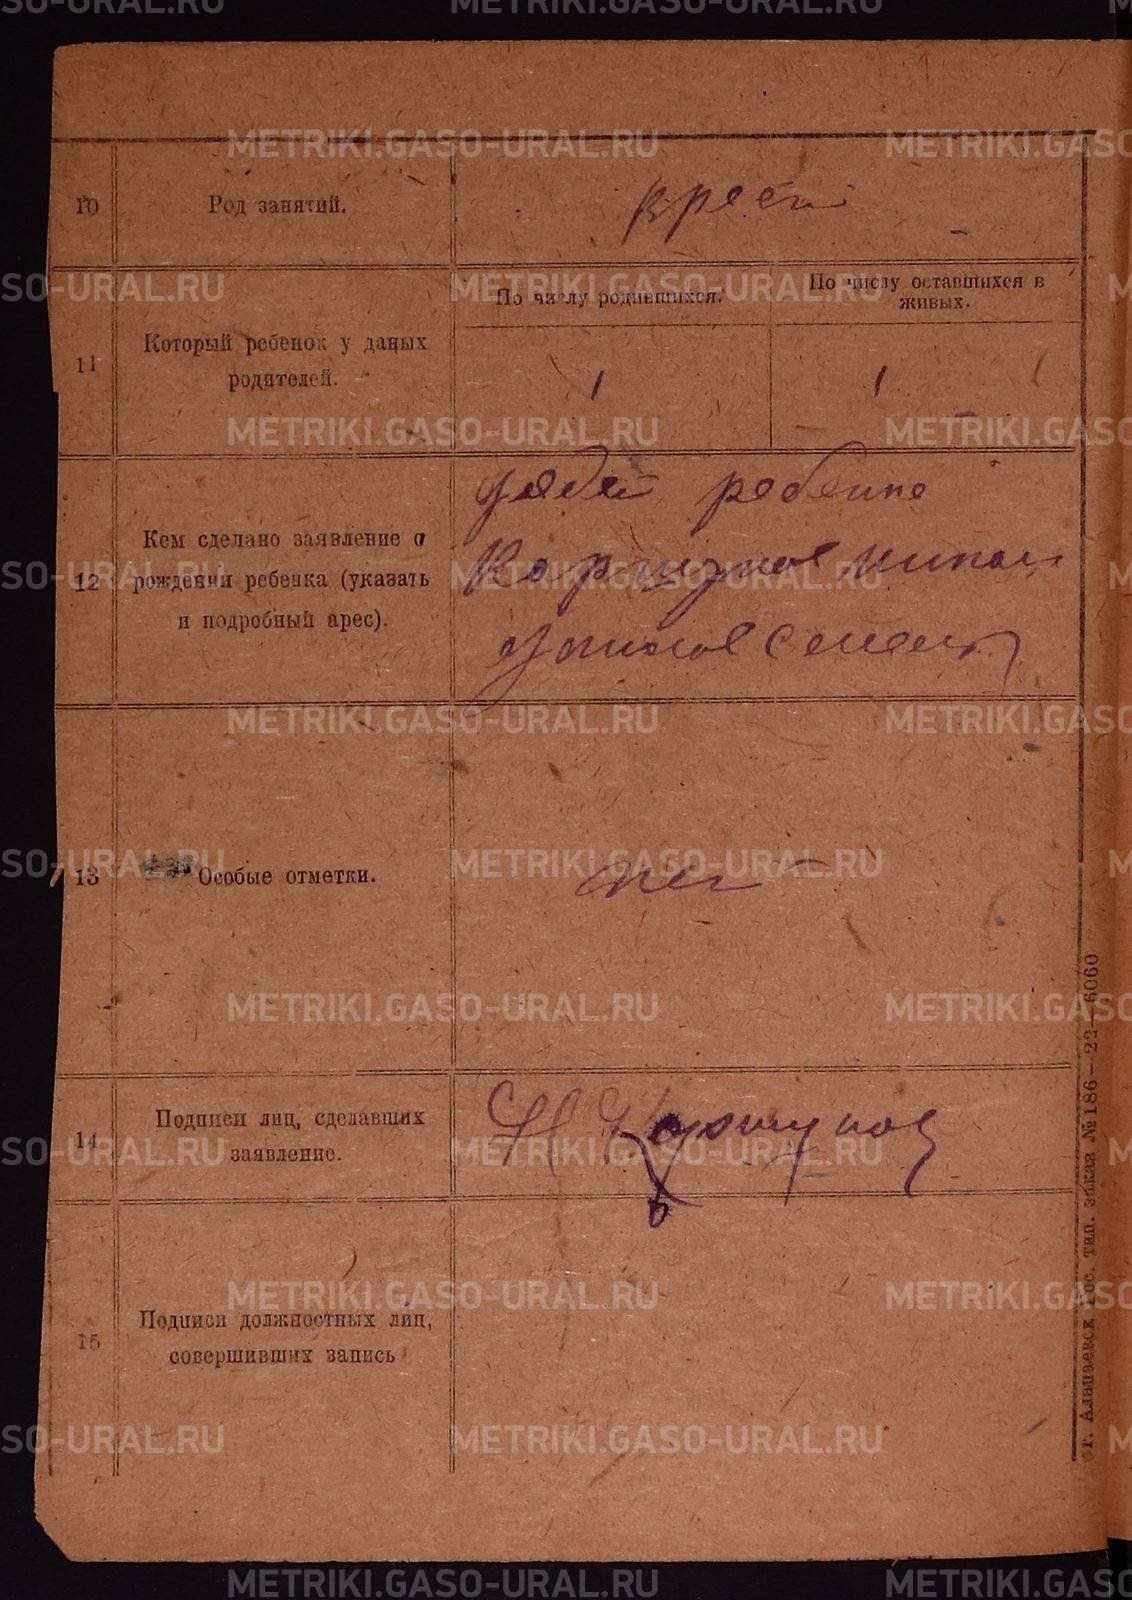 10 Род занятий. крест
11 Который ребенок у даных родителей.
По числу родившихся.
По числу оставшихся в
живых.
1
1
12 Кем сделано заявление о
рождении ребенка (указать
и подробный арес).
дядей ребенка
Коршунов
13 Особые отметки.
нет
14 Подписи лиц, сделавших
заявление.
Н Коршунов
15 Подписи должностных лиц,
совершивших запись
г. Алапаевск Гос. тип. заказ № 186—22—6060
METRIKI.GASO-URAL.RU